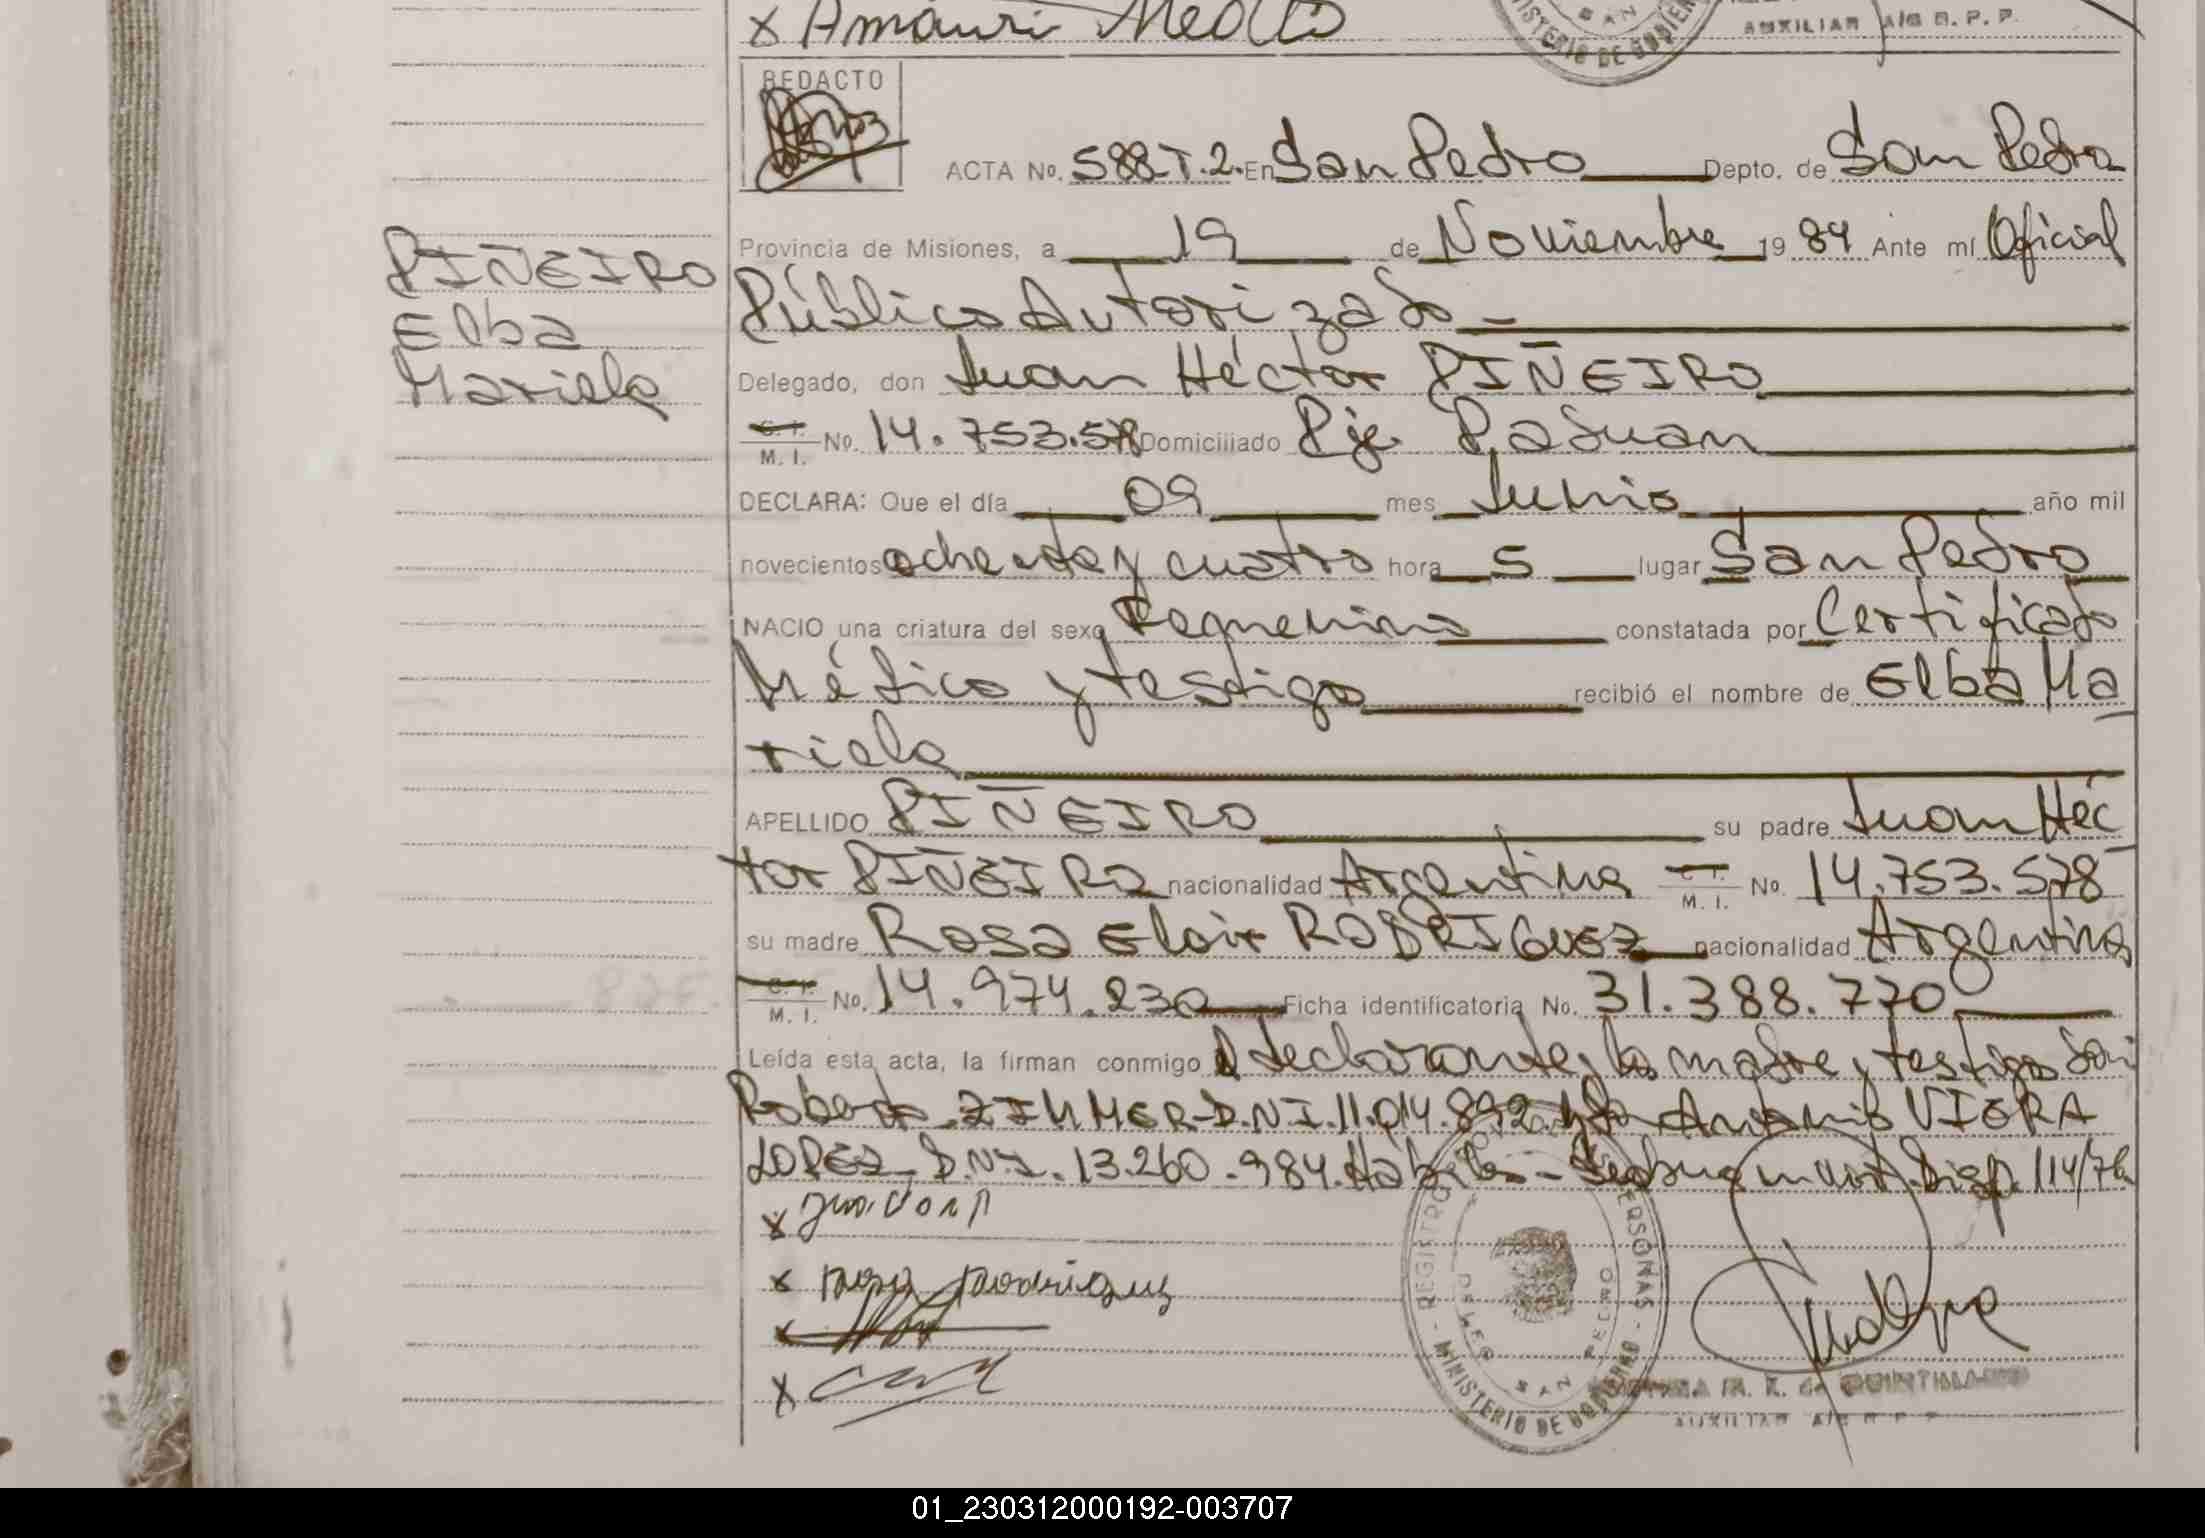 x Amauri Mello
MINISTERIO DE GOBIERNO
AUXILIAR A/C R. P. P.
REDACTO
ACTA No. 588 T.2. En San Pedro Depto. de San Pedro
Provincia de Misiones, a 19 de Noviembre 19 84 Ante mí Oficial
PIÑEIRO
Elba
Mariela
Público Autorizado
Delegado, don Juan Héctor PIÑEIRO
C. I.
M. I. No. 14.753.578 Domiciliado Pje.
DECLARA: Que el día 09 mes Junio año mil
novecientos ochenta y cuatro hora 5 lugar San Pedro
NACIO una criatura del sexo Femenino constatada por Certificado
Médico y testigo recibió el nombre de Elba Ma
riela
APELLIDO PIÑEIRO su padre Juan Héc
tor PIÑEIRO nacionalidad Argentina C. I. M. I. No. 14.753.578
su madre Rosa RODRIGUEZ nacionalidad Argentina
C. I.
M. I. No. 14.974.230 Ficha identificatoria No. 31.388.770
Leída esta acta, la firman conmigo el declarante, la madre y testigo Don
Roberto ZIMMER-D.N.I.11.014.892. Antonio VIERA
LOPEZ, D.N.I. 13.260.984. Hábiles - Disp. 114/76
x
x rosa rodriguez
x
x
REGISTRO PERSONAS
MINISTERIO DE GOBIERNO
M. R. de QUINTANA
AUXILIAR A/C R P P
01_230312000192-003707